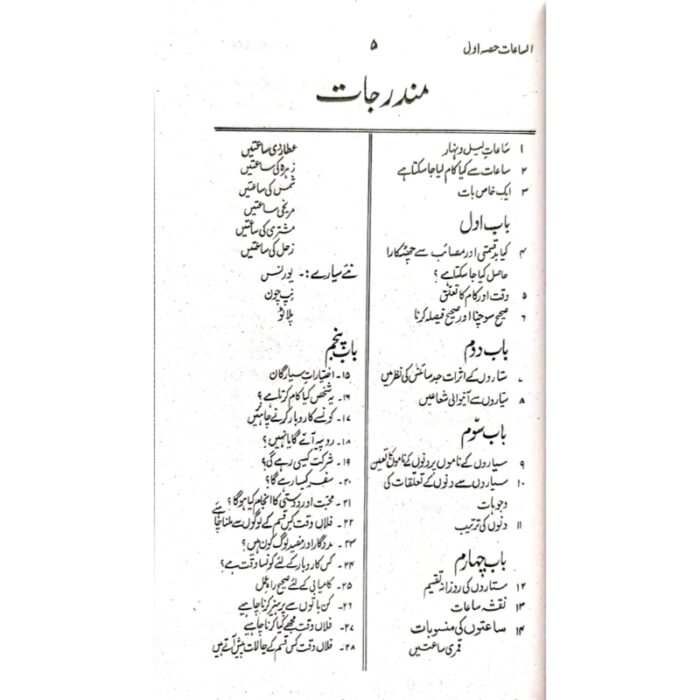 الساعات حصہ اول
۵
مندرجات
۱ ساعات لیل و نہار
۲ ساعات سے کیا کام لیا جا سکتا ہے
۳ ایک خاص بات
باب اول
۴ کیا بدقسمتی اور مصائب سے چھٹکارا
حاصل کیا جا سکتا ہے ؟
۵ وقت اور کام کا تعلق
۶ صحیح سوچنا اور صحیح فیصلہ کرنا
باب دوم
۷ ستاروں کے اثرات جدید سائنس کی نظر میں
۸ سیاروں سے آنیوالی شعاعیں
باب سوّم
۹ سیاروں کے ناموں پر دنوں کے ناموں کا تعین
۱۰ سیاروں سے دنوں کے تعلقات کی
وجوہات
۱۱ دنوں کی ترتیب
باب چہارم
۱۲ ستاروں کی روزانہ تقسیم
۱۳ نقشہ ساعات
۱۴ ساعتوں کی منسوبات
قمری ساعتیں
عطارد کی ساعتیں
زہرہ کی ساعتیں
شمس کی ساعتیں
مریخی ساعتیں
مشتری کی ساعتیں
زحل کی ساعتیں
نئے سیارے :۔ یورنس
نیپچون
پلاٹو
باب پنجم
۱۵۔ اختیارات سیارگان
۱۶۔ یہ شخص کیا کام کرتا ہے ؟
۱۷۔ کونسے کاروبار کرنے چاہئیں
۱۸۔ روپیہ آئے گا یا نہیں ؟
۱۹۔ شرکت کیسی رہے گی ؟
۲۰۔ سفر کیسا رہے گا ؟
۲۱۔ محبت اور دوستی کا انجام کیا ہوگا ؟
۲۲۔ فلاں وقت کس قسم کے لوگوں سے ملنا چاہئے
۲۳۔ مددگار اور مفید لوگ کون ہیں ؟
۲۴۔ کس کاروبار کے لئے کونسا وقت ہے ؟
۲۵۔ کامیابی کے لئے صحیح راہ عمل
۲۶۔ کن باتوں سے پرہیز کرنا چاہیے
۲۷۔ فلاں وقت مجھے کیا کرنا چاہیے
۲۸۔ فلاں وقت کس قسم کے حالات پیش آتے ہیں